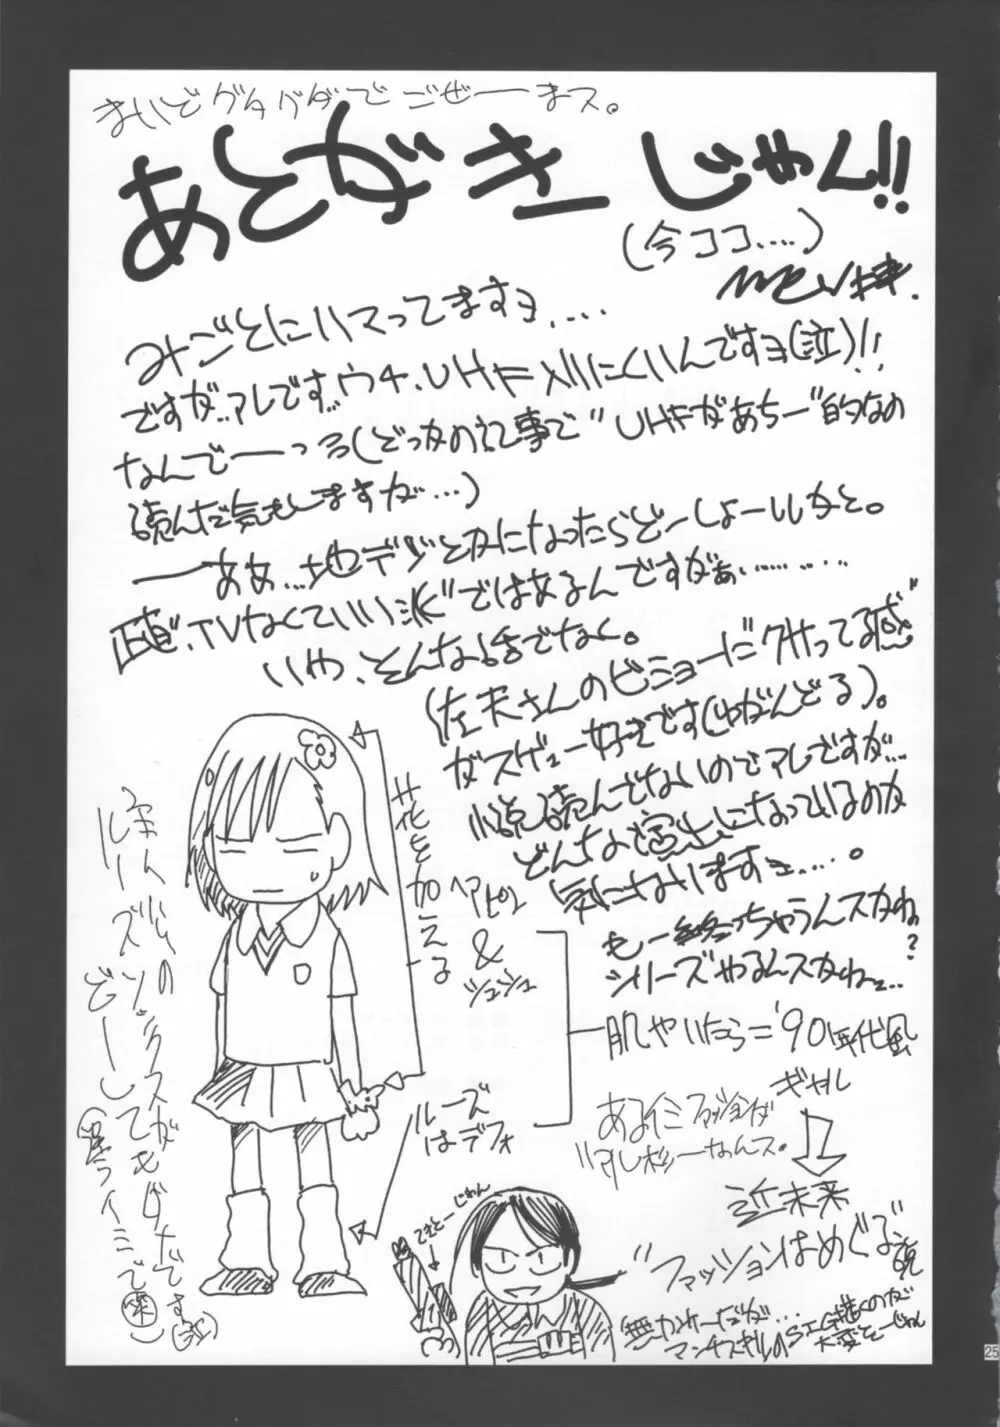 まいどグダグダでごぜーまス。
あとがきじゃん!!
(今ココ....)
みごとにハマってますヨ....
ですが..アレです..ウチ、UHF入りにくいんですヨ(泣)!!
なんでーーっ(どっかの記事で"UHFがあちー"的なの
読んだ気もしますが...)
ーああ...地デジとかになったらどーしょーいかと。
正直、TVなくていい派ではあるんですがぁ.........
いや、そんな話でなく。
(左天さんのビミョーにクサってる感"
がスゲェー好きです(ゆがんどる)。
小説読んでないのでアレですが...
どんな演出になっているのか
気になりますヨ.....。
もー終っちゃうんスかね?
シリーズやるんスかねェ..
花を加える
ヘアピン
&
シュシュ
ルーズ
はデフォ
肌やいたら='90年代風
ギャル
ある イミ ファッションが
ハレしなんス。
近未来
"ファッションはめぐる"説
てきとーじゃん
ルーズソックスがもダメです(泣)
(違うイミで(笑))
無かれーだが...
マンチスギルのSIG描くのが
大変そーじゃん
25